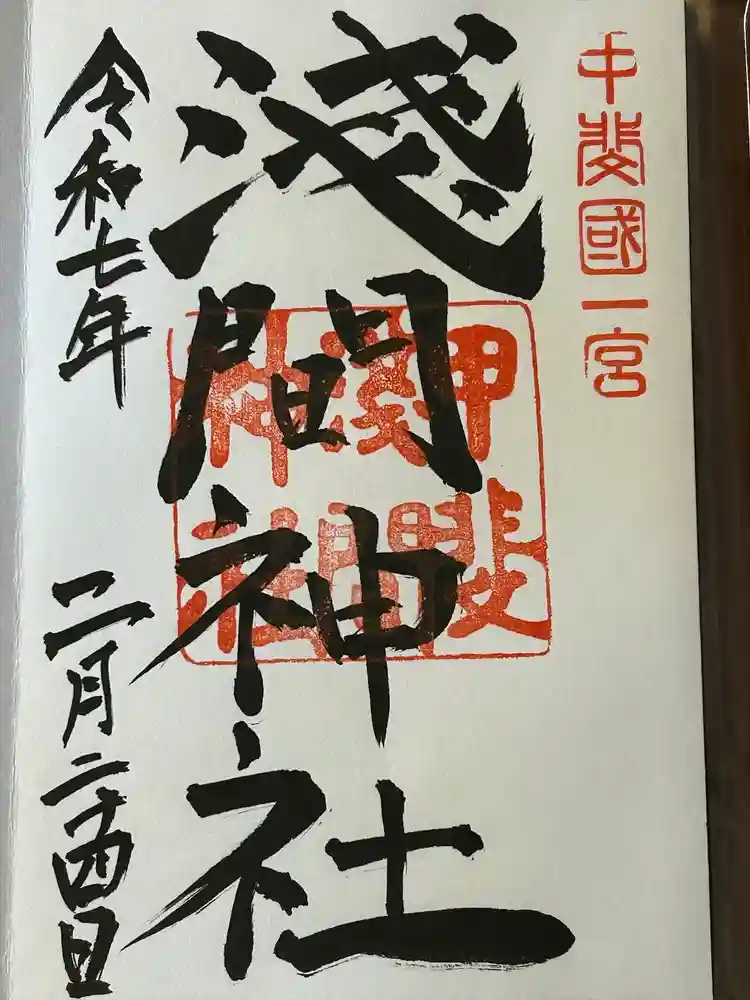 甲斐國一宮
淺間神社
甲斐
淺間
神社
令和七年 二月二十四日